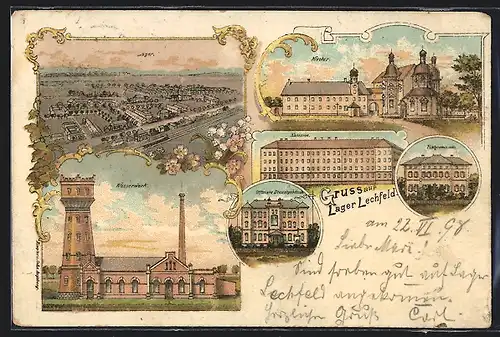 Lager.
Kloster.
Kaserne.
Wasserwerk.
Gruss aus
Lager Lechfeld
am 22. VI. 98
Liebe Mari!
Sind soeben gut auf Lager
Lechfeld angekommen.
Herzlichen Gruß Carl.